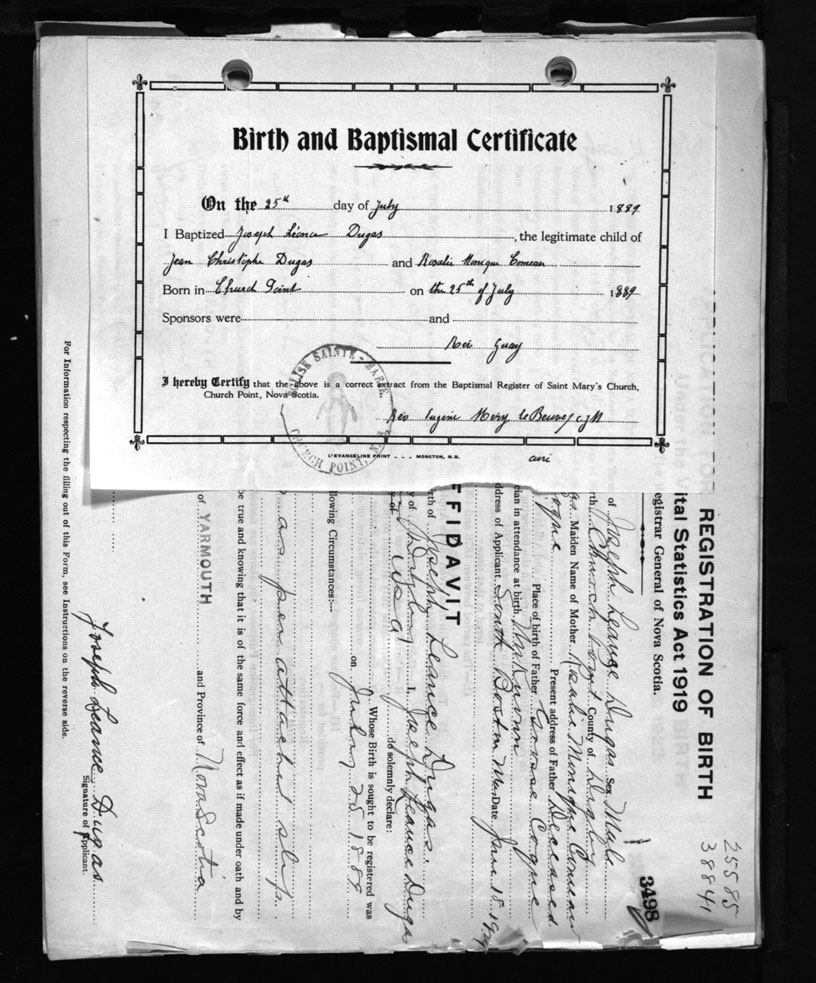 Birth and Baptismal Certificate
On the 25th day of July 1889
I Baptized Joseph Léonce Dugas, the legitimate child of
Jean Christophe Dugas and Rosalie Monique Comeau
Born in Church Point on the 25th of July 1889
Sponsors were and
Rev Guay
I hereby Certify that the above is a correct extract from the Baptismal Register of Saint Mary's Church,
Church Point, Nova Scotia.
Rev Eugène
L'EVANGELINE PRINT - - - MONCTON, N.B.
SAINTE-MARIE
CHURCH POINT, N.S.
25585
38841
3498
REGISTRATION OF BIRTH
ital Statistics Act 1919
egistrar General of Nova Scotia.
of Joseph Leance Dugas Sex Male
rth Church Point County of Digby
as. Maiden Name of Mother Rosalie Monique Comeau
ogue Present address of Father Deceased
Place of birth of Father Grosse Coque
cian in attendance at birth Unknown
ddress of Applicant South Boston Mass Date
FFIDAVIT
rth of Joseph Leance Dugas.
y of I, Joseph Leance Dugas
of U S a do solemnly declare:
Whose Birth is sought to be registered was
on July 25 1889
llowing Circumstances:—
as per attached slip.
be true and knowing that it is of the same force and effect as if made under oath and by
of YARMOUTH and Province of Nova Scotia
Joseph Leance Dugas
Signature of Applicant.
For Information respecting the filling out of this Form, see Instructions on the reverse side.